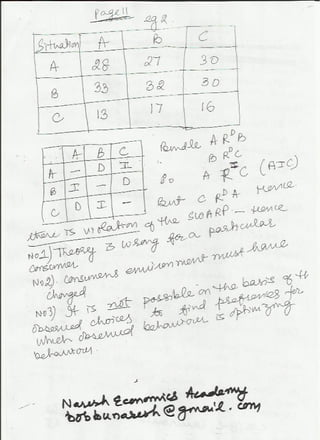 Page 11 eg 2
Situation A B C
A 28 27 30
B 33 32 30
C 13 17 16
A B C
A — D I
B I — D
C D I —
Bundle A RᴰB
" B RᴰC
So A RᴵC (AIC)
But C RᴰA Hence
there is violation of the SWARP — Hence
No 1) Theory is wrong for a particular
consumer
No 2). Consumers environment must have
changed
No 3) It is not possible on the basis of th
observed choices to find prefrences for
which observed behaviour is optimizing
behaviour.
Naresh Economics Academy
bobbunaresh@gmail.com